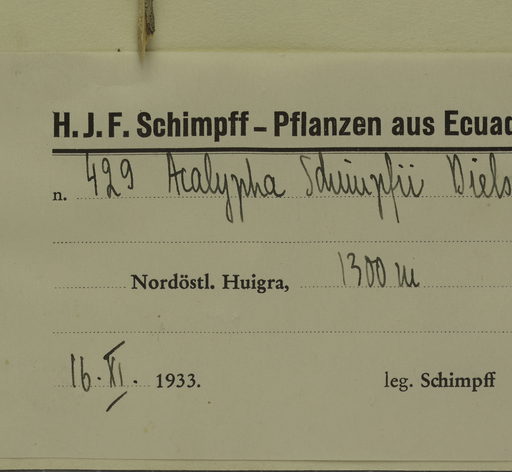 H. J. F. Schimpff – Pflanzen aus Ecuad
n. 429 Acalypha Schimpffii Diels
Nordöstl. Huigra, 1300 m
16. XI. 1933. leg. Schimpff